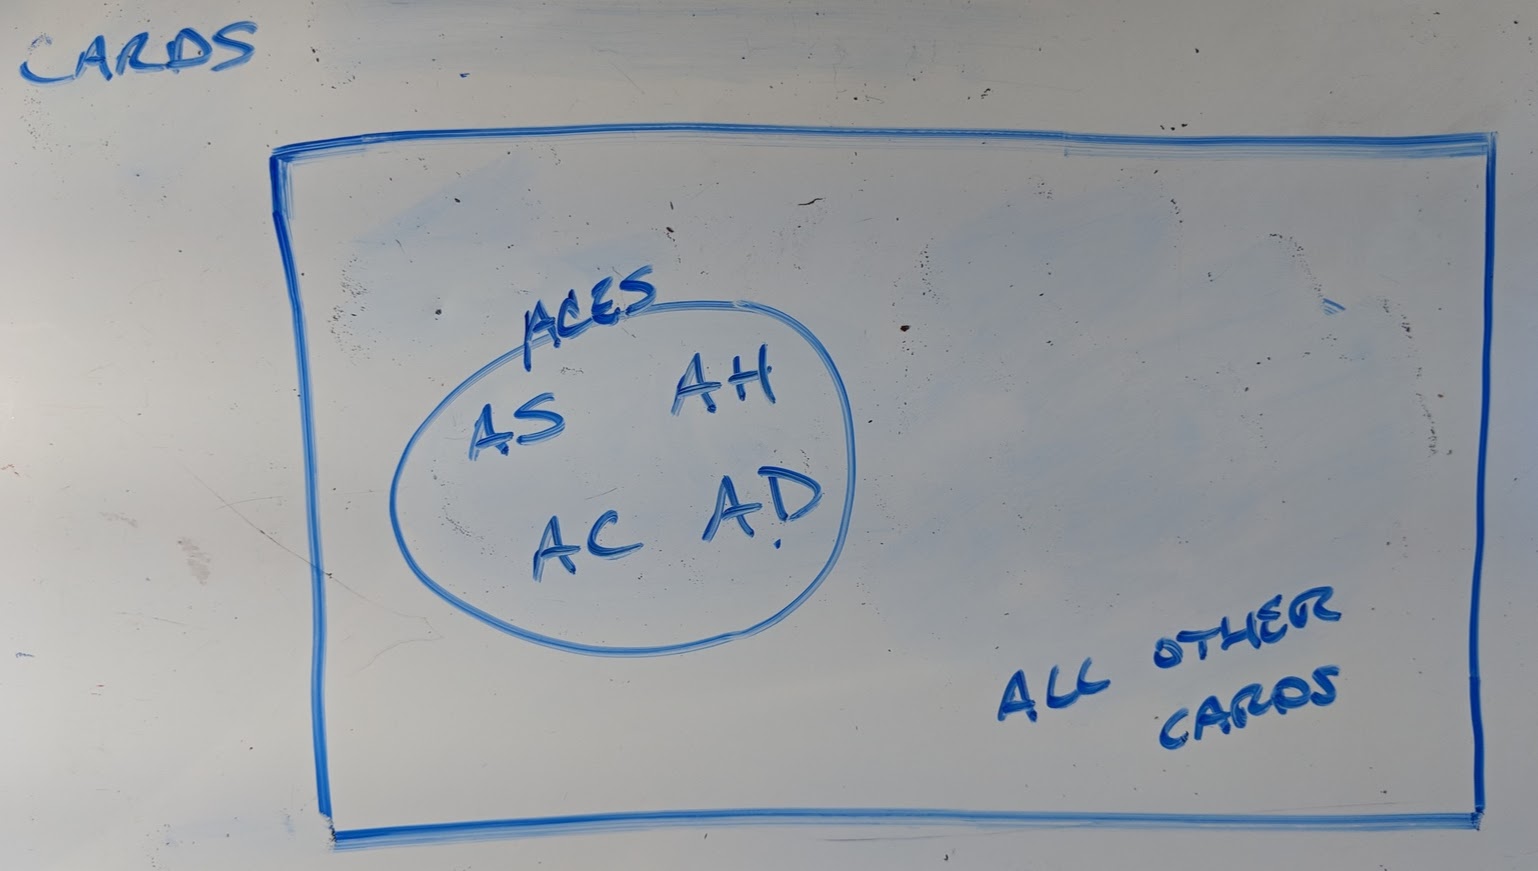 CARDS
ACES
AS AH
AC AD
ALL OTHER
CARDS